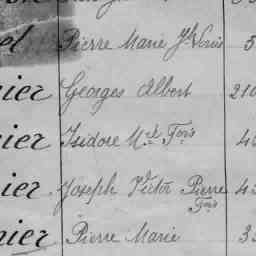 Pierre Marie Jh Louis 5
nier Georges Albert 210
nier Isidore Mel Fois 4
nier Joseph Victor Pierre 43
Fois
nier Pierre Marie 33